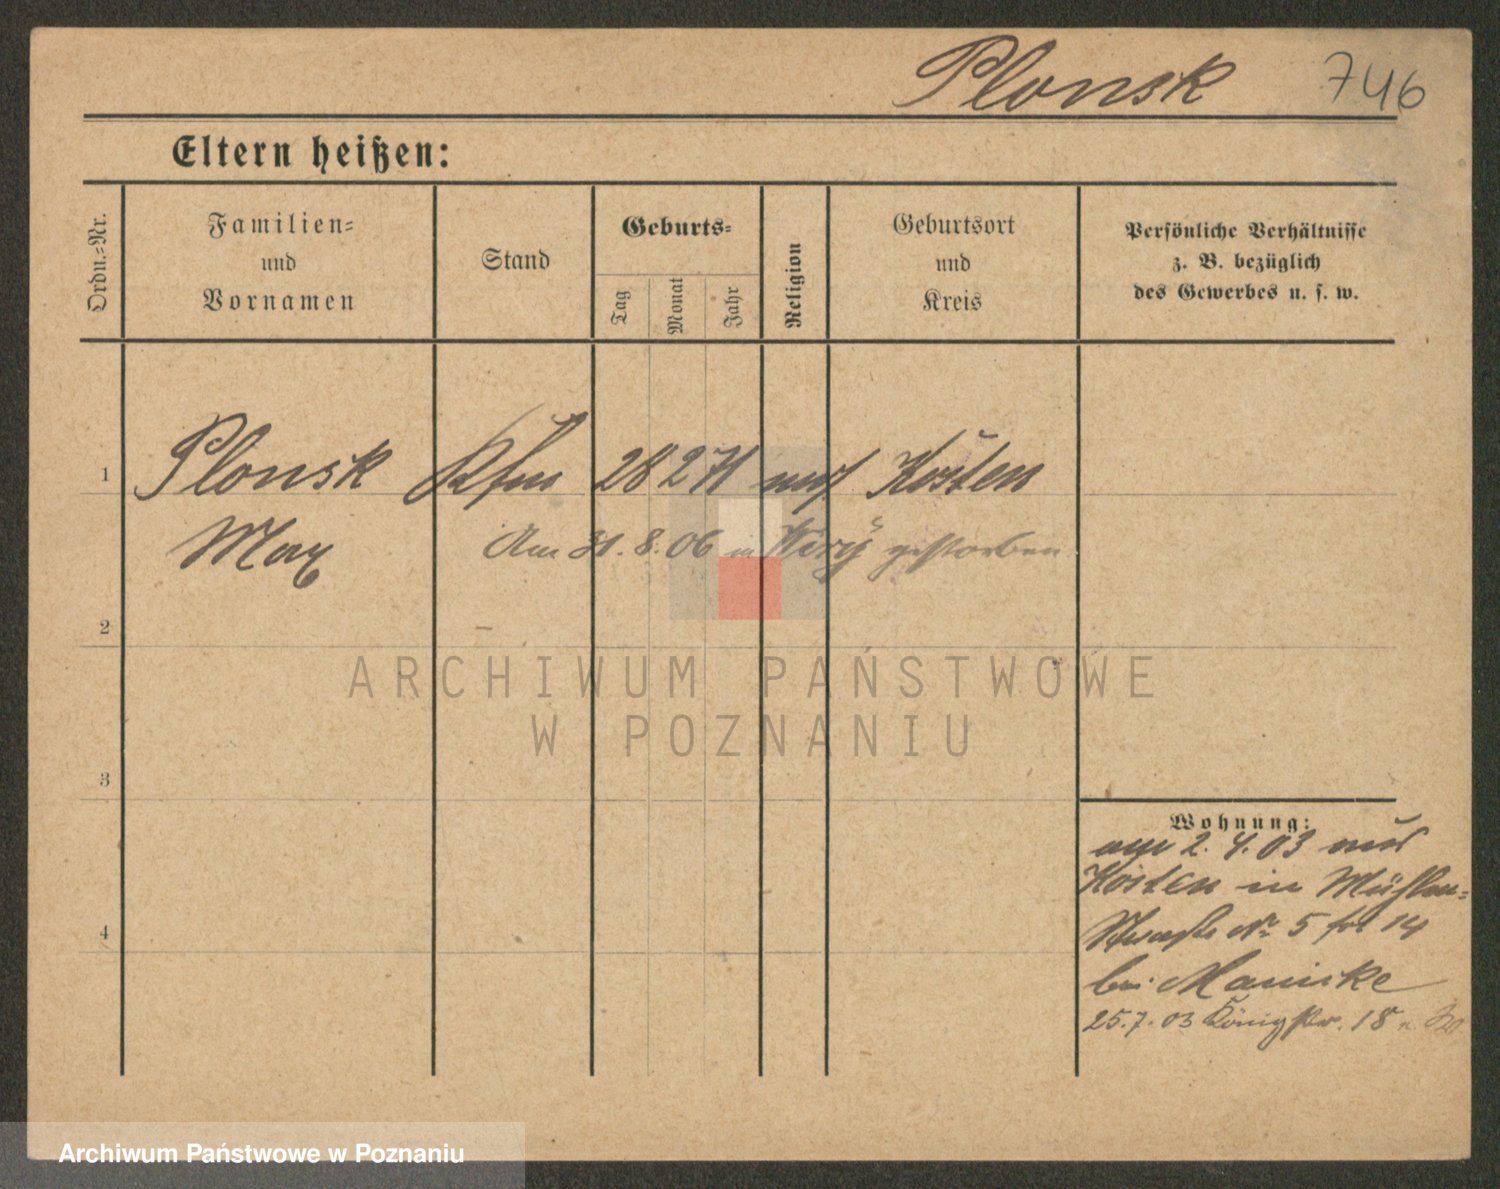 Plonsk 746
Eltern heißen:
Ordn.-Nr.
Familien-
und
Vornamen
Stand
Geburts-
Tag
Monat
Jahr
Religion
Geburtsort
und
Kreis
Persönliche Verhältnisse
z. B. bezüglich
des Gewerbes u. s. w.
1 Plonsk Kfm 28 2 71 mos Kosten
Max Am 31. 8. 06 in gestorben
2
3
4
ARCHIWUM PAŃSTWOWE
W POZNANIU
Wohnung:
2. 4. 03 aus
Kosten in Mühlen-
Strasse No 5 14
bei Manicke
25.7.03 Königstr. 18
Archiwum Państwowe w Poznaniu